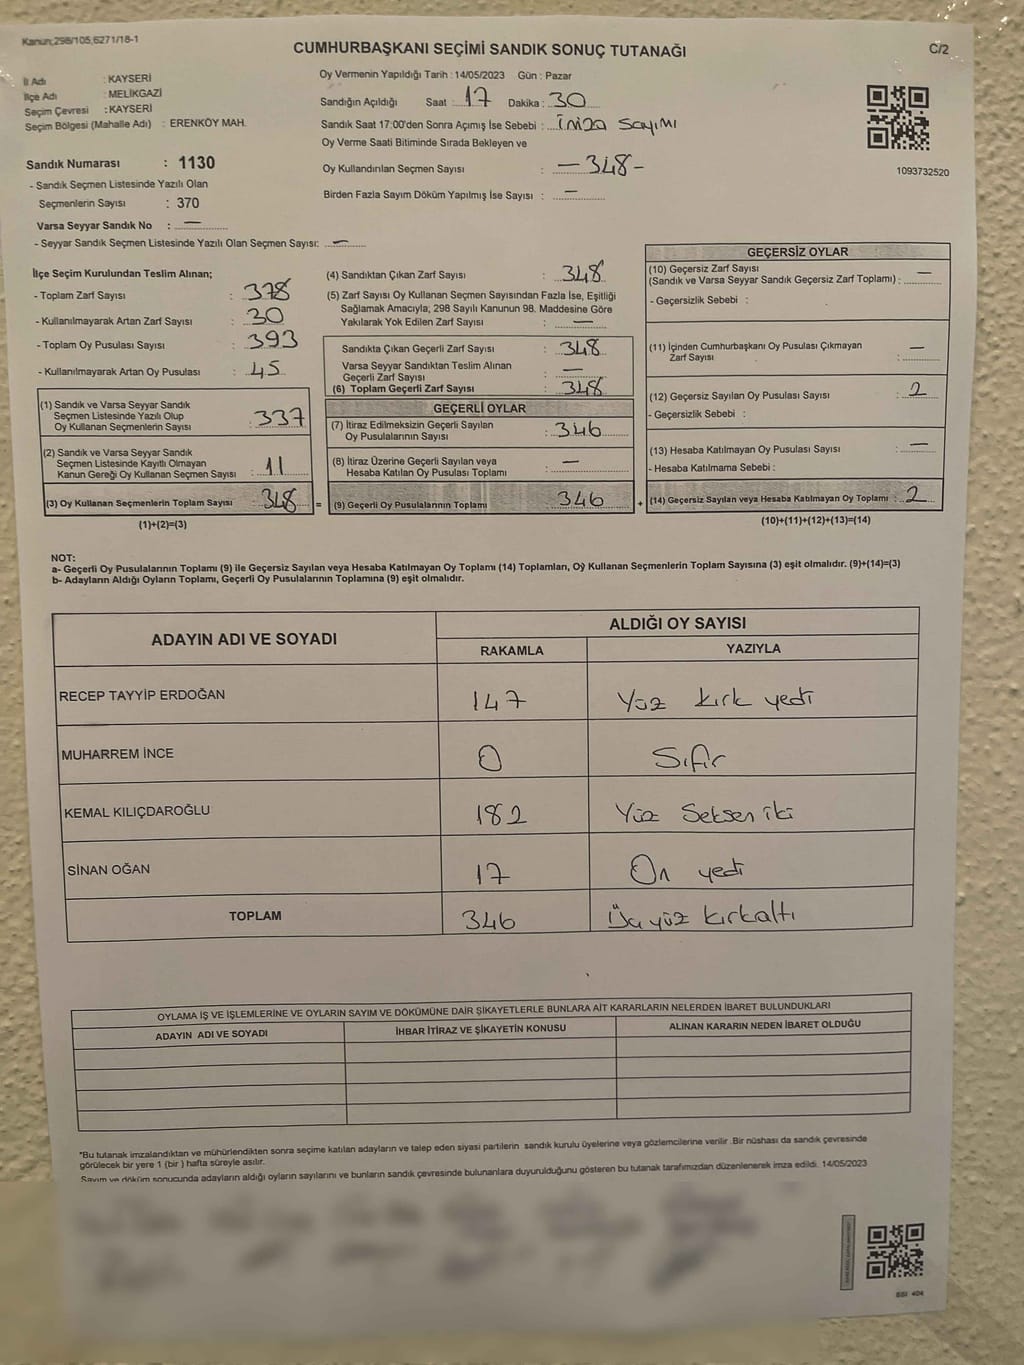 Kanun;298/105,6271/18-1
CUMHURBAŞKANI SEÇİMİ SANDIK SONUÇ TUTANAĞI
C/2
İl Adı : KAYSERİ
İlçe Adı : MELİKGAZİ
Seçim Çevresi : KAYSERİ
Seçim Bölgesi (Mahalle Adı) : ERENKÖY MAH.
Oy Vermenin Yapıldığı Tarih : 14/05/2023 Gün : Pazar
Sandığın Açıldığı Saat : 17 Dakika : 30
Sandık Saat 17:00'den Sonra Açımış İse Sebebi : İmza Sayımı
Oy Verme Saati Bitiminde Sırada Bekleyen ve
Oy Kullandırılan Seçmen Sayısı : -348-
Birden Fazla Sayım Döküm Yapılmış İse Sayısı : -
1093732520
Sandık Numarası : 1130
- Sandık Seçmen Listesinde Yazılı Olan
Seçmenlerin Sayısı : 370
Varsa Seyyar Sandık No : -
- Seyyar Sandık Seçmen Listesinde Yazılı Olan Seçmen Sayısı: -
İlçe Seçim Kurulundan Teslim Alınan;
- Toplam Zarf Sayısı : 378
- Kullanılmayarak Artan Zarf Sayısı : 30
- Toplam Oy Pusulası Sayısı : 393
- Kullanılmayarak Artan Oy Pusulası : 45
(1) Sandık ve Varsa Seyyar Sandık
Seçmen Listesinde Yazılı Olup
Oy Kullanan Seçmenlerin Sayısı : 337
(2) Sandık ve Varsa Seyyar Sandık
Seçmen Listesinde Kayıtlı Olmayan
Kanun Gereği Oy Kullanan Seçmen Sayısı : 11
(3) Oy Kullanan Seçmenlerin Toplam Sayısı : 348 =
(1)+(2)=(3)
(4) Sandıktan Çıkan Zarf Sayısı : 348
(5) Zarf Sayısı Oy Kullanan Seçmen Sayısından Fazla İse, Eşitliği
Sağlamak Amacıyla; 298 Sayılı Kanunun 98. Maddesine Göre
Yakılarak Yok Edilen Zarf Sayısı : -
Sandıkta Çıkan Geçerli Zarf Sayısı : 348
Varsa Seyyar Sandıktan Teslim Alınan
Geçerli Zarf Sayısı : -
(6) Toplam Geçerli Zarf Sayısı : 348
GEÇERLİ OYLAR
(7) İtiraz Edilmeksizin Geçerli Sayılan
Oy Pusulalarının Sayısı : 346
(8) İtiraz Üzerine Geçerli Sayılan veya
Hesaba Katılan Oy Pusulası Toplamı : -
(9) Geçerli Oy Pusulalarının Toplamı : 346 +
GEÇERSİZ OYLAR
(10) Geçersiz Zarf Sayısı
(Sandık ve Varsa Seyyar Sandık Geçersiz Zarf Toplamı) : -
- Geçersizlik Sebebi :
(11) İçinden Cumhurbaşkanı Oy Pusulası Çıkmayan
Zarf Sayısı : -
(12) Geçersiz Sayılan Oy Pusulası Sayısı : 2
- Geçersizlik Sebebi :
(13) Hesaba Katılmayan Oy Pusulası Sayısı : -
- Hesaba Katılmama Sebebi :
(14) Geçersiz Sayılan veya Hesaba Katılmayan Oy Toplamı : 2
(10)+(11)+(12)+(13)=(14)
NOT:
a- Geçerli Oy Pusulalarının Toplamı (9) ile Geçersiz Sayılan veya Hesaba Katılmayan Oy Toplamı (14) Toplamları, Oy Kullanan Seçmenlerin Toplam Sayısına (3) eşit olmalıdır. (9)+(14)=(3)
b- Adayların Aldığı Oyların Toplamı, Geçerli Oy Pusulalarının Toplamına (9) eşit olmalıdır.
ADAYIN ADI VE SOYADI
ALDIĞI OY SAYISI
RAKAMLA YAZIYLA
RECEP TAYYİP ERDOĞAN 147 Yüz kırk yedi
MUHARREM İNCE 0 Sıfır
KEMAL KILIÇDAROĞLU 182 Yüz Seksen iki
SİNAN OĞAN 17 On yedi
TOPLAM 346 Üç yüz kırkaltı
OYLAMA İŞ VE İŞLEMLERİNE VE OYLARIN SAYIM VE DÖKÜMÜNE DAİR ŞİKAYETLERLE BUNLARA AİT KARARLARIN NELERDEN İBARET BULUNDUKLARI
ADAYIN ADI VE SOYADI İHBAR İTİRAZ VE ŞİKAYETİN KONUSU ALINAN KARARIN NEDEN İBARET OLDUĞU
*Bu tutanak imzalandıktan ve mühürlendikten sonra seçime katılan adayların ve talep eden siyasi partilerin sandık kurulu üyelerine veya gözlemcilerine verilir .Bir nüshası da sandık çevresinde
görülecek bir yere 1 (bir ) hafta süreyle asılır.
Sayım ve döküm sonucunda adayların aldığı oyların sayılarını ve bunların sandık çevresinde bulunanlara duyurulduğunu gösteren bu tutanak tarafımızdan düzenlenerek imza edildi. 14/05/2023
SSI 404